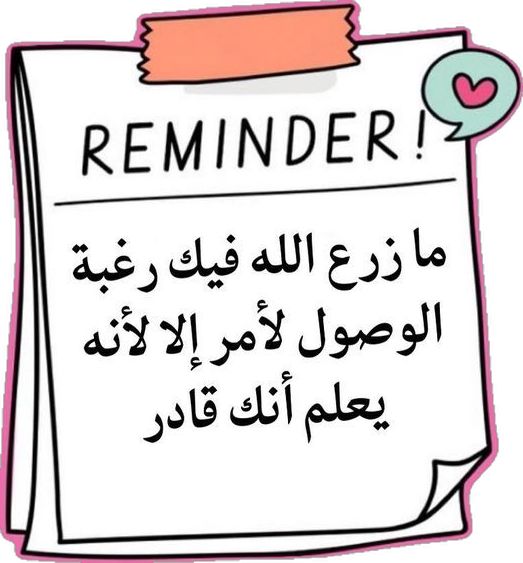 REMINDER!
ما زرع الله فيك رغبة
الوصول لأمر إلا لأنه
يعلم أنك قادر